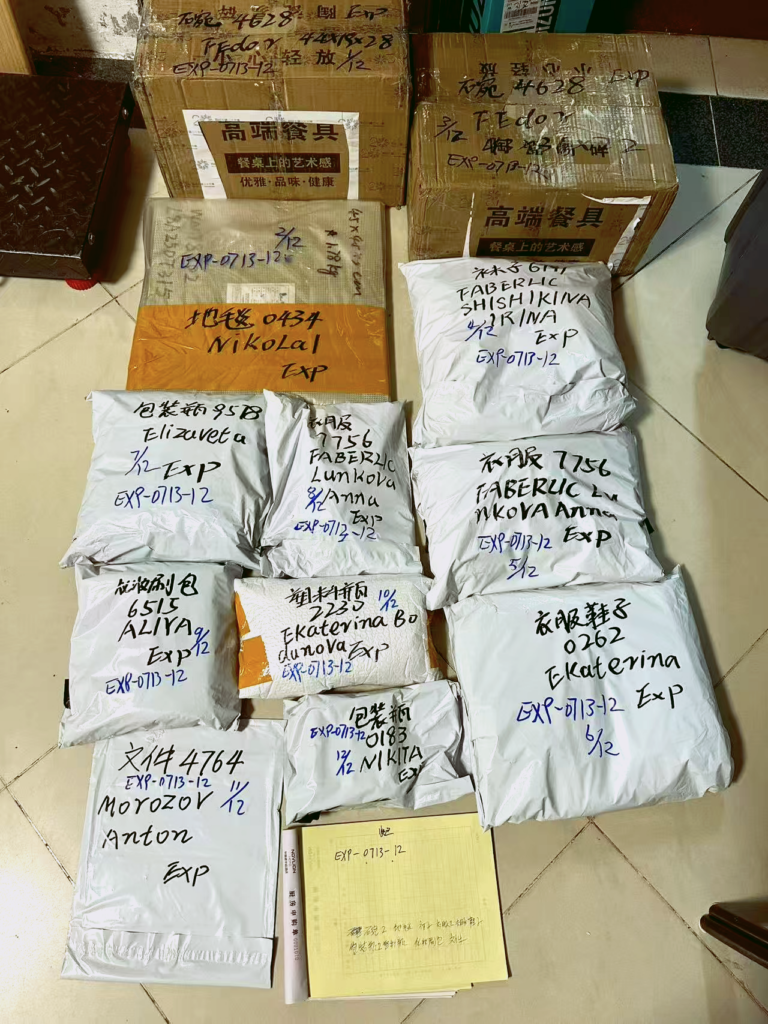 石碗 4628 陶 Exp
FFedor 42x19x28
小心轻放
EXP-0713-12 1/12
高端餐具
餐桌上的艺术感
优雅·品味·健康
小心轻放
石碗 4628 Exp
3/12 FFedor
EXP-0713-12
高端餐具
餐桌上的艺术感
2/12
EXP-0713-12
地毯 0434
NikoLaI
Exp
袜子 6141
FABERLIC
SHISHIKINA
IRINA
4/12 Exp
EXP-0713-12
包装瓶 95B
Elizaveta
7/12 Exp
EXP-0713-12
衣服
7756
FABERLIC
Lunkova
8/12 Anna
Exp
EXP-0713-12
衣服 7756
FABERLIC Lu
nKOVA Anna
EXP-0713-12 Exp
5/12
刷包
6515
ALIYA
Exp 9/12
EXP-0713-12
塑料瓶
2230 10/12
Ekaterina Bo
dunova Exp
EXP-0713-12
衣服鞋子
0262
Ekaterina
EXP-0713-12 Exp
6/12
包装瓶
EXP-0713-12
0183
12/12 NIKITA
Exp
文件 4764
EXP-0713-12
Morozov 11/12
Anton
Exp
EXP-0713-12